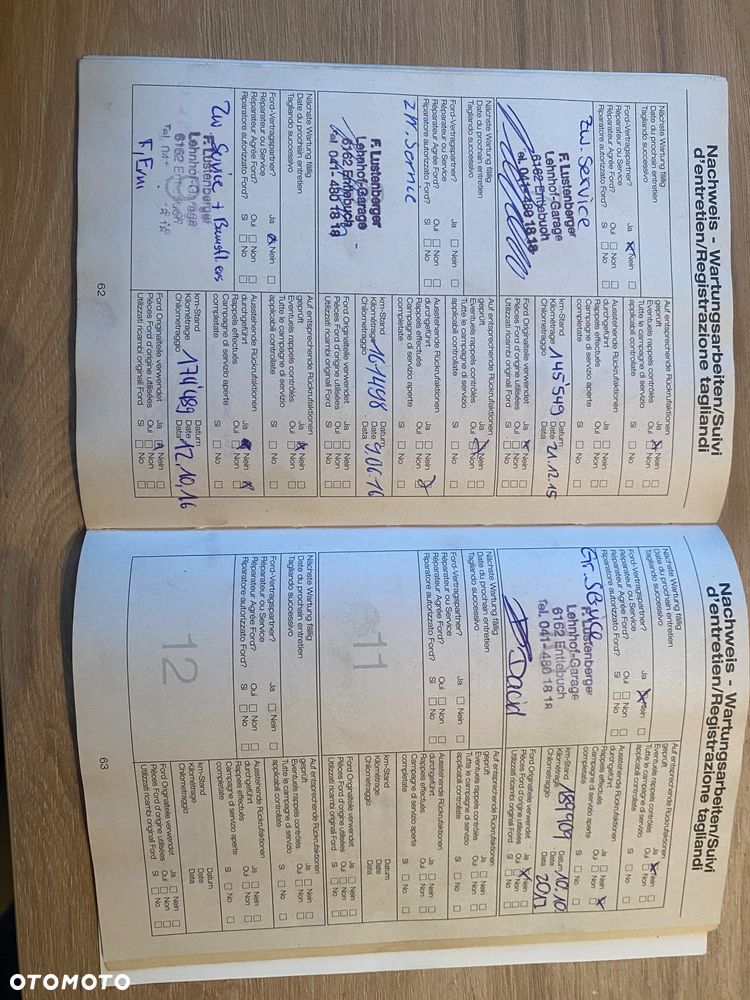 Nachweis - Wartungsarbeiten/Suivi
d'entretien/Registrazione tagliandi
Nächste Wartung fällig
Date du prochain entretien
Tagliando successivo
Ford-Vertragspartner? Ja Nein
Réparateur ou Service
Réparateur Agrée Ford? Oui Non
Riparatore autorizzato Ford? Si No
Zw. Service
F. Lustenberger
Lehnhof-Garage
6162 Entlebuch
Tel. 041- 480 18 18
Auf entsprechende Rückrufaktionen
geprüft Ja Nein
Eventuels rappels contrôlés Oui Non
Tutte le campagne di servizio
applicabili controllate Si No
Ausstehende Rückrufaktionen
durchgeführt Ja Nein
Rappels effectués Oui Non
Campagne di servizio aperte
completate Si No
km-Stand Datum
Kilométrage 145'549 Date 21.12.15
Chilometraggio Data
Ford Originalteile verwendet Ja Nein
Pièces Ford d'origine utilisées Oui Non
Utilizzati ricambi originali Ford Si No
Nächste Wartung fällig
Date du prochain entretien
Tagliando successivo
Ford-Vertragspartner? Ja Nein
Réparateur ou Service
Réparateur Agrée Ford? Oui Non
Riparatore autorizzato Ford? Si No
F. Lustenberger
Lehnhof-Garage
6162 Entlebuch
Tel 041- 480 18 18
Auf entsprechende Rückrufaktionen
geprüft Ja Nein
Eventuels rappels contrôlés Oui Non
Tutte le campagne di servizio
applicabili controllate Si No
Ausstehende Rückrufaktionen
durchgeführt Ja Nein
Rappels effectués Oui Non
Campagne di servizio aperte
completate Si No
km-Stand Datum
Kilométrage 161498 Date 9.06.16
Chilometraggio Data
Ford Originalteile verwendet Ja Nein
Pièces Ford d'origine utilisées Oui Non
Utilizzati ricambi originali Ford Si No
Nächste Wartung fällig
Date du prochain entretien
Tagliando successivo
Ford-Vertragspartner? Ja Nein
Réparateur ou Service
Réparateur Agrée Ford? Oui Non
Riparatore autorizzato Ford? Si No
Zw Service +
F. Lustenberger
Lehnhof-Garage
6162 Entlebuch
Auf entsprechende Rückrufaktionen
geprüft Ja Nein
Eventuels rappels contrôlés Oui Non
Tutte le campagne di servizio
applicabili controllate Si No
Ausstehende Rückrufaktionen
durchgeführt Ja Nein
Rappels effectués Oui Non
Campagne di servizio aperte
completate Si No
km-Stand Datum
Kilométrage 174'489 Date 12.10.16
Chilometraggio Data
Ford Originalteile verwendet Ja Nein
Pièces Ford d'origine utilisées Oui Non
Utilizzati ricambi originali Ford Si No
62
Nachweis - Wartungsarbeiten/Suivi
d'entretien/Registrazione tagliandi
Nächste Wartung fällig
Date du prochain entretien
Tagliando successivo
Ford-Vertragspartner? Ja Nein
Réparateur ou Service
Réparateur Agrée Ford? Oui Non
Riparatore autorizzato Ford? Si No
Gr. Service
F. Lustenberger
Lehnhof-Garage
6162 Entlebuch
Tel. 041- 480 18 18
David
Auf entsprechende Rückrufaktionen
geprüft Ja Nein
Eventuels rappels contrôlés Oui Non
Tutte le campagne di servizio
applicabili controllate Si No
Ausstehende Rückrufaktionen
durchgeführt Ja Nein
Rappels effectués Oui Non
Campagne di servizio aperte
completate Si No
km-Stand Datum
Kilométrage 189909 Date 10.10
Chilometraggio Data
Ford Originalteile verwendet Ja Nein
Pièces Ford d'origine utilisées Oui Non
Utilizzati ricambi originali Ford Si No
Nächste Wartung fällig
Date du prochain entretien
Tagliando successivo
Ford-Vertragspartner? Ja Nein
Réparateur ou Service
Réparateur Agrée Ford? Oui Non
Riparatore autorizzato Ford? Si No
11
Auf entsprechende Rückrufaktionen
geprüft Ja Nein
Eventuels rappels contrôlés Oui Non
Tutte le campagne di servizio
applicabili controllate Si No
Ausstehende Rückrufaktionen
durchgeführt Ja Nein
Rappels effectués Oui Non
Campagne di servizio aperte
completate Si No
km-Stand Datum
Kilométrage Date
Chilometraggio Data
Ford Originalteile verwendet Ja Nein
Pièces Ford d'origine utilisées Oui Non
Utilizzati ricambi originali Ford Si No
Nächste Wartung fällig
Date du prochain entretien
Tagliando successivo
Ford-Vertragspartner? Ja Nein
Réparateur ou Service
Réparateur Agrée Ford? Oui Non
Riparatore autorizzato Ford? Si No
12
Auf entsprechende Rückrufaktionen
geprüft Ja Nein
Eventuels rappels contrôlés Oui Non
Tutte le campagne di servizio
applicabili controllate Si No
Ausstehende Rückrufaktionen
durchgeführt Ja Nein
Rappels effectués Oui Non
Campagne di servizio aperte
completate Si No
km-Stand Datum
Kilométrage Date
Chilometraggio Data
Ford Originalteile verwendet Ja Nein
Pièces Ford d'origine utilisées Oui Non
Utilizzati ricambi originali Ford Si No
63
OTOMOTO